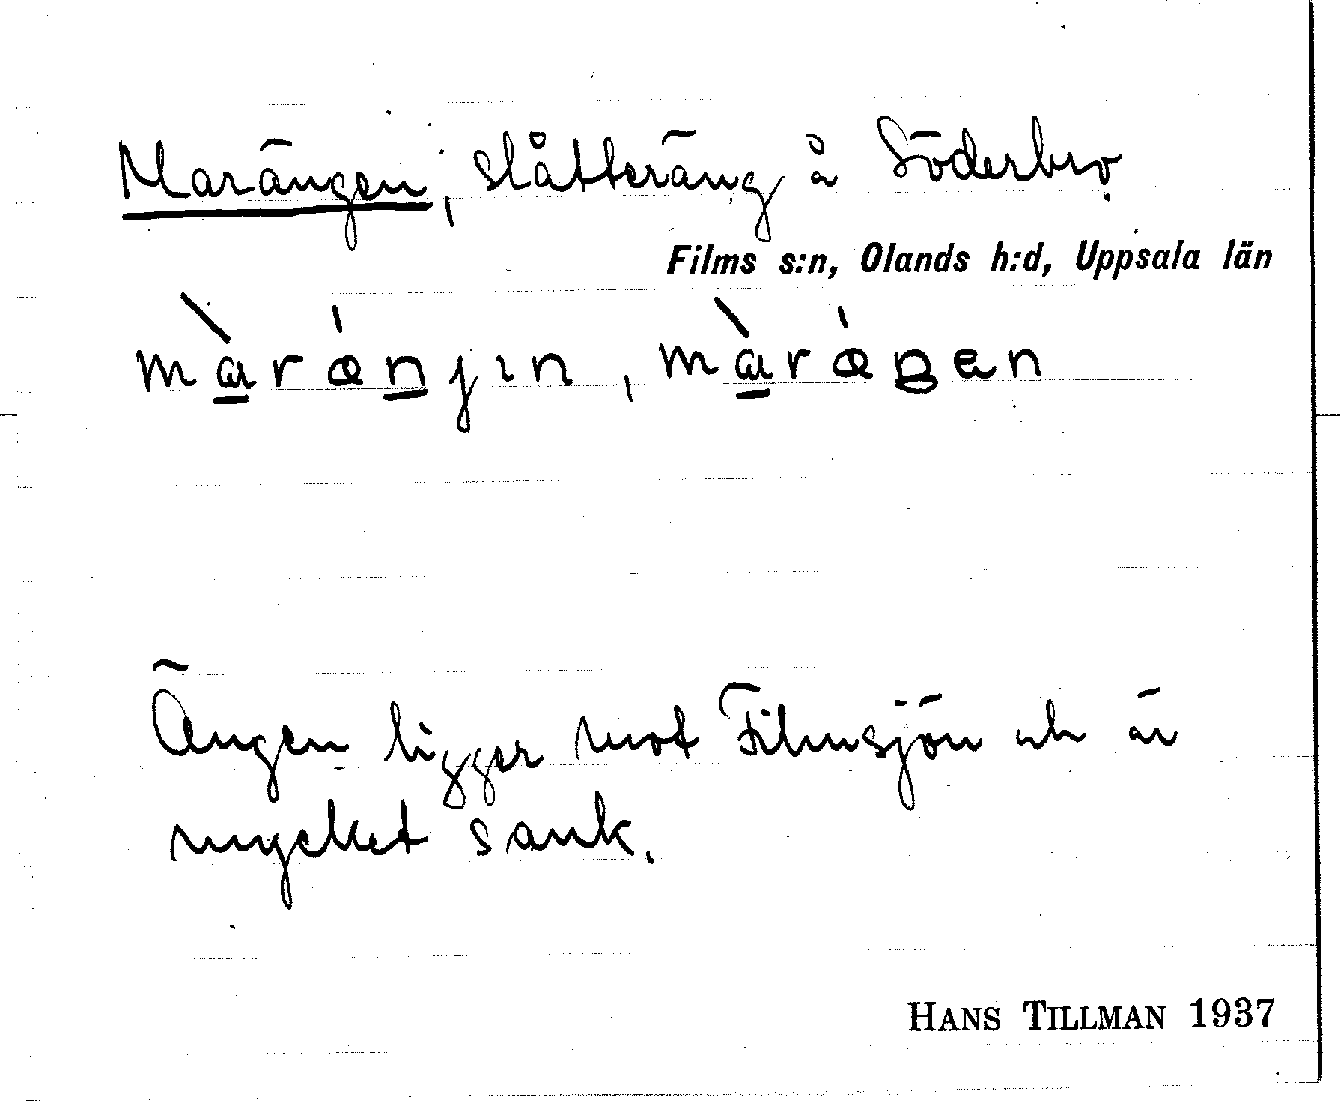 Marängen, slåtteräng å Söderbro.
Films s:n, Olands h:d, Uppsala län
màránjın, màráŋen
Ängen ligger mot Filmsjön och är
mycket sank.
HANS TILLMAN 1937